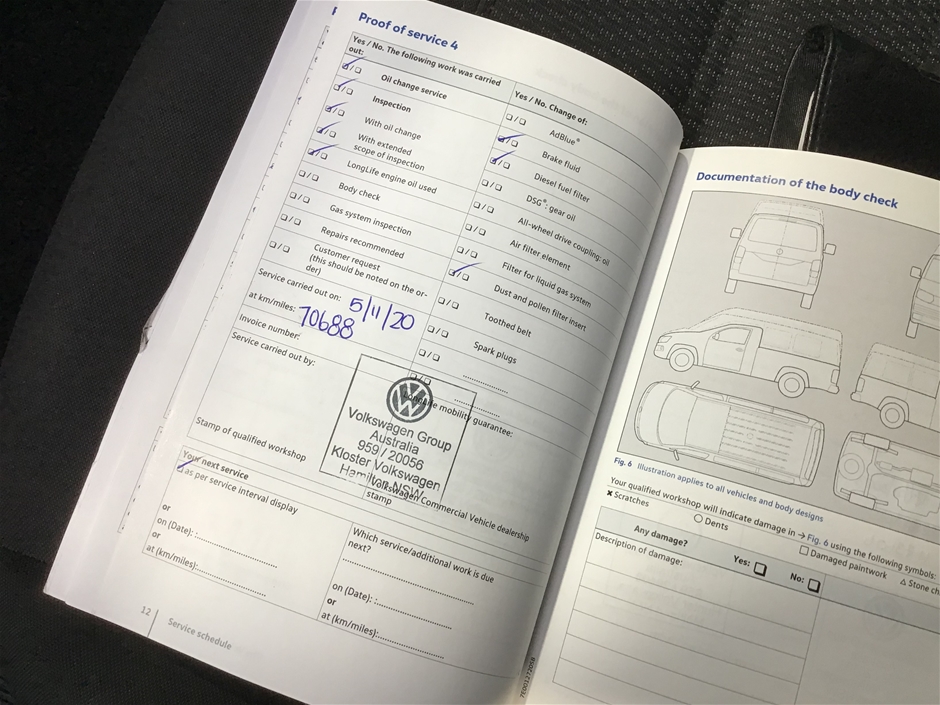 Proof of service 4
Yes / No. The following work was carried
out:
Oil change service
Inspection
With oil change
With extended
scope of inspection
LongLife engine oil used
Body check
Gas system inspection
Repairs recommended
Customer request
(this should be noted on the or-
der)
Yes / No. Change of:
AdBlue®
Brake fluid
Diesel fuel filter
DSG®: gear oil
All-wheel drive coupling: oil
Air filter element
Filter for liquid gas system
Dust and pollen filter insert
Toothed belt
Spark plugs
Service carried out on: 5/11/20
at km/miles: 70688
Invoice number:
Service carried out by:
mobility guarantee:
Volkswagen Group
Australia
959 / 20056
Kloster Volkswagen
Hamilton NSW
Stamp of qualified workshop
Volkswagen Commercial Vehicle dealership
stamp
Your next service
as per service interval display
or
on (Date): :
or
at (km/miles):
Which service/additional work is due
next?
on (Date): :
or
at (km/miles):
12
Service schedule
Documentation of the body check
Fig. 6 Illustration applies to all vehicles and body designs
Your qualified workshop will indicate damage in → Fig. 6 using the following symbols:
✖ Scratches
○ Dents
□ Damaged paintwork
△ Stone ch
Any damage?
Yes: ❑
No: ❑
Description of damage: